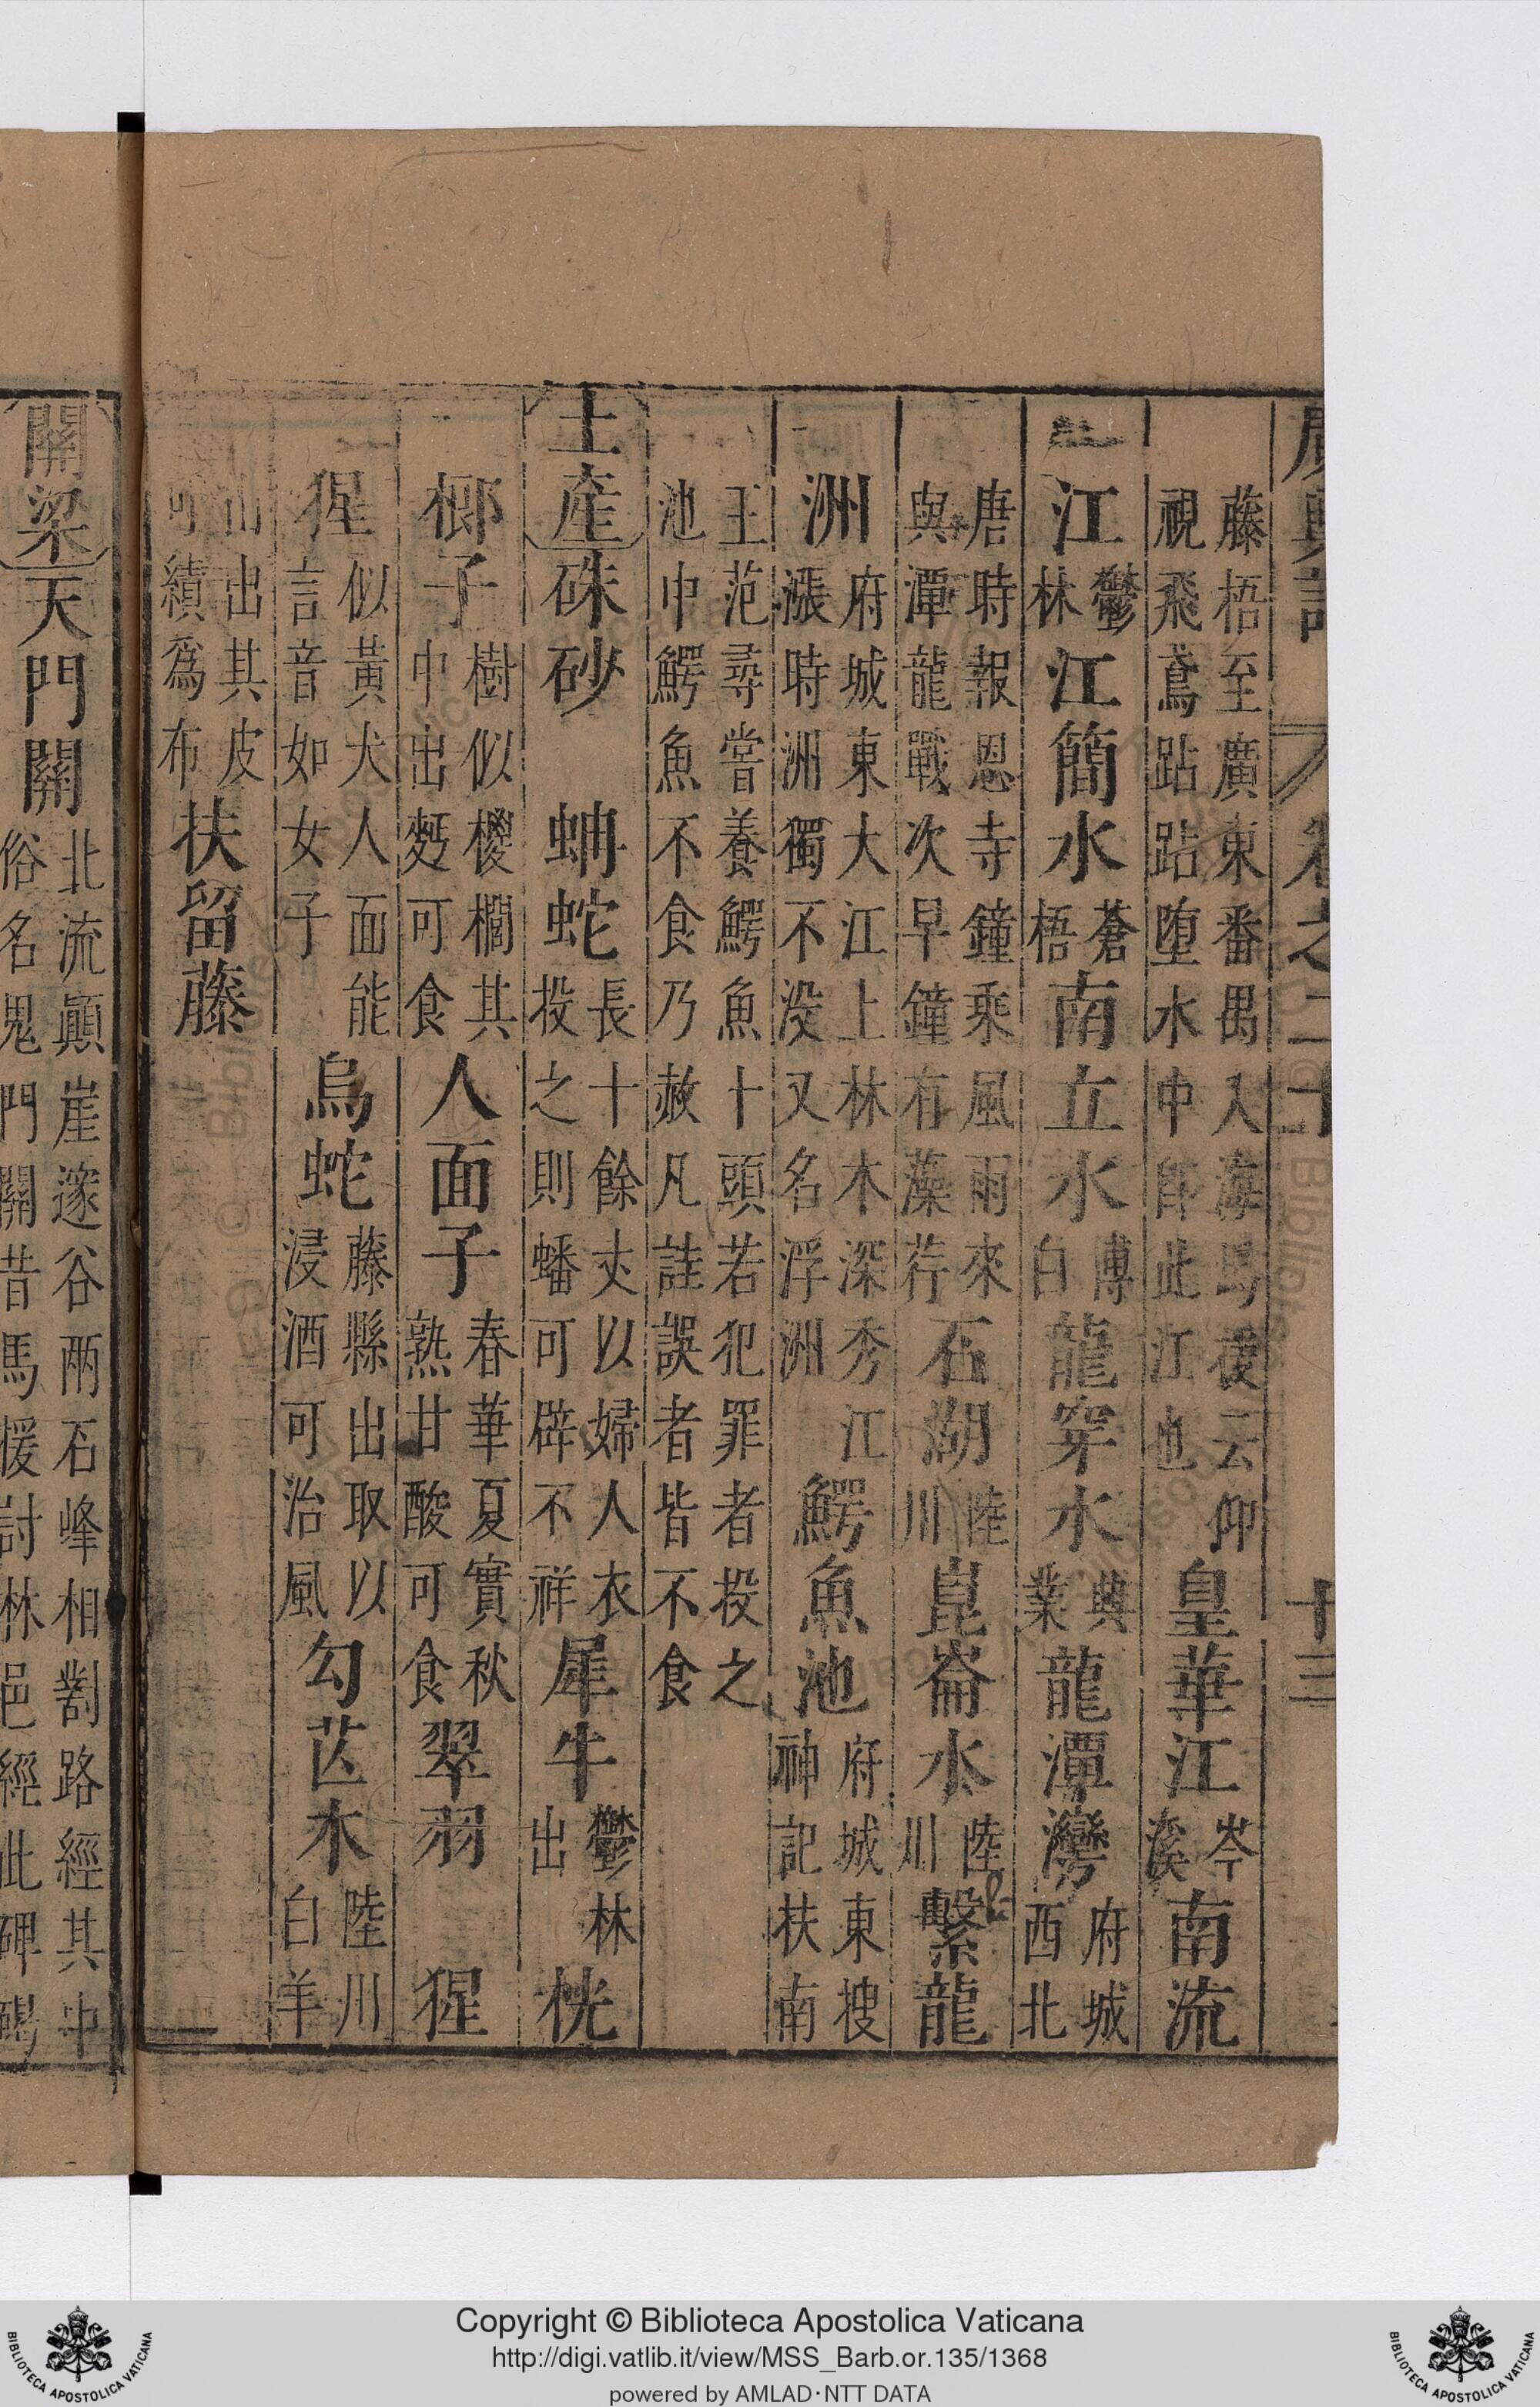 廣輿記 卷之二十 十三
藤梧至廣東番禺入海馬援云仰
視飛鳶跕跕墮水中卽此江也
皇華江岑溪南流
江鬱林江簡水蒼梧南立水博白龍穿水興業龍潭灣府城西北
唐時報恩寺鐘乘風雨來
與潭龍戰次早鐘有藻荇
石湖陸川崑崙水陸川繫龍
洲府城東大江上林木深秀江
漲時洲獨不没又名浮洲
鰐魚池府城東搜神記扶南
王范尋嘗養鰐魚十頭若犯罪者投之
池中鰐魚不食乃赦凡詿誤者皆不食
土產硃砂 蚺蛇長十餘丈以婦人衣
投之則蟠可辟不祥
犀牛鬱林出桄
榔子樹似椶櫚其
中出麪可食
人面子春華夏實秋
熟甘酸可食
翠羽 猩
猩似黃犬人面能
言音如女子
烏蛇藤縣出取以
浸酒可治風
勾芒木陸川白羊
山出其皮
可績爲布
扶留藤
關梁天門關北流顚崖邃谷兩石峰相對路經其中
俗名鬼門關昔馬援討林邑經此碑碣
Copyright © Biblioteca Apostolica Vaticana
http://digi.vatlib.it/view/MSS_Barb.or.135/1368
powered by AMLAD·NTT DATA
BIBLIOTECA APOSTOLICA VATICANA
BIBLIOTECA APOSTOLICA VATICANA